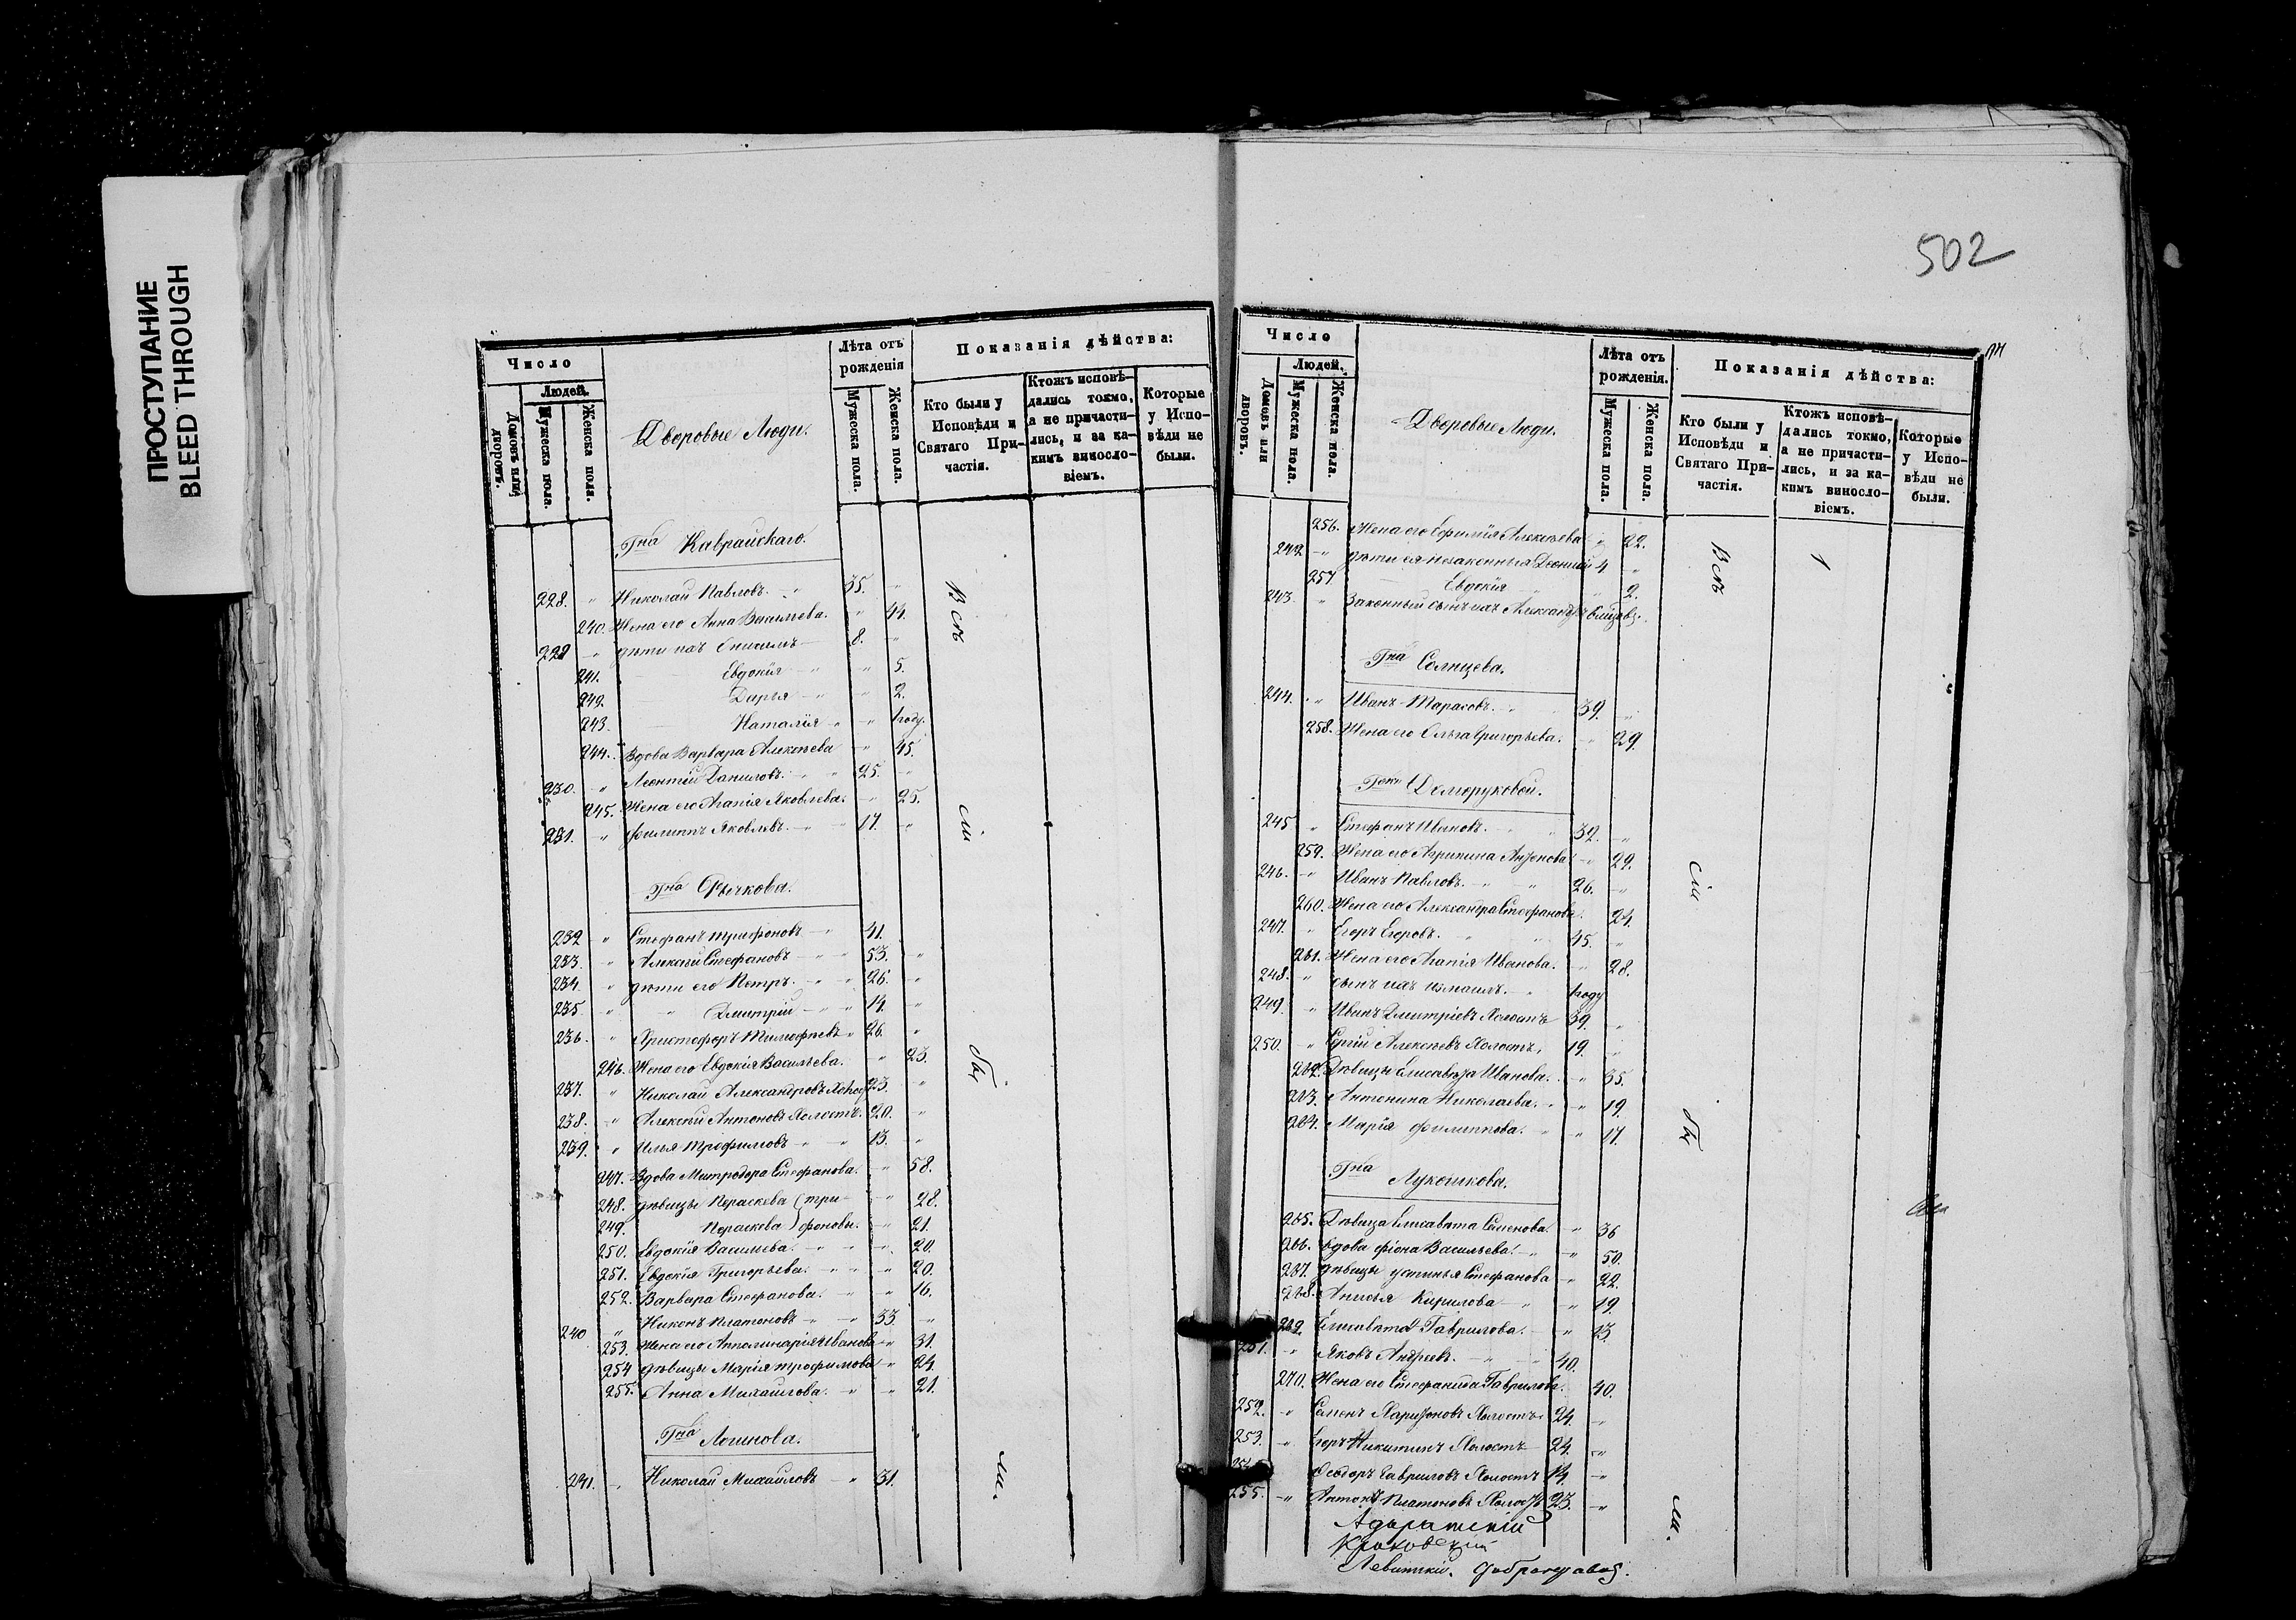 ПРОСТУПАНИЕ
BLEED THROUGH
502
Число
Людей.
Домовъ или дворовъ.
Мужеска пола.
Женска пола.
Дворовые Люди.
Лѣта отъ рожденія
Мужеска пола.
Женска пола.
Показанія дѣйства:
Кто были у Исповѣди и Святаго Причастія.
Ктожъ исповѣдались токмо, а не причастились, и за какимъ винословіемъ.
Которые у Исповѣди не были.
Гна Каврайскаго.
228. " Николай Павловъ. " 35. "
240. Жена его Анна Васильева. " 44.
229 " дѣти ихъ 8. "
241. Евдокія " " 5.
242. Дарья " " 2.
243. Наталія " " 1 году.
244. Вдова Варвара Алексѣева " 45.
230. " Леонтій Даниловъ. " " 25. "
245. Жена его Агапія Яковлева. " 25.
231. " Филиппъ Яковлевъ. " " 17. "
Гна Рычкова.
232 " Стефанъ Трифоновъ " 41.
233. " Алексѣй Стефановъ " " 53. "
234. " дѣти его Петръ. " " 26. "
235 " " Дмитрій " " 14. "
236. " Христофоръ Тимофѣевъ " 26. "
246. Жена его Евдокія Васильева. " 23.
237. " Николай Александровъ Холост 23. "
238. " Алексѣй Антоновъ Холостъ. 20. "
239. " Илья Трофимовъ " " 13. "
247. Вдова Митродора Стефанова. " 58.
248. дѣвицы Параскева (Три- " 28.
249. Параскева) фоновы. " 21.
250. Евдокія Васильева. " " " 20.
251. Евдокія Григорьева. " " " 20.
252. Варвара Стефанова. " " 16.
240 " Никонъ Платоновъ " " 33. "
253. Жена его Апполинарія Иванова " 31.
254 дѣвицы Марія Трофимова " 24.
255. Анна Михайлова. " " 21.
Гна Логинова.
241. " Николай Михайловъ " 31.
Всѣ
сіи
бы
ли.
Число
Людей.
Домовъ или дворовъ.
Мужеска пола.
Женска пола.
Дворовые Люди.
Лѣта отъ рожденія.
Мужеска пола.
Женска пола.
Показанія дѣйства:
Кто были у Исповѣди и Святаго Причастія.
Ктожъ исповѣдались токмо, а не причастились, и за какимъ винословіемъ.
Которые у Исповѣди не были.
256. Жена его Ефимія Алексѣева " 22.
242 " дѣти ея незаконныя 4 "
257. Евдокія " 2.
243. " Законный сынъ ихъ Александръ
Гна Солнцева.
244. " Иванъ Тарасовъ. " 39. "
258. Жена его Ольга Григорьева. " 29.
Гжи Долгоруковой.
245 " Стефанъ Ивановъ. " 32. "
259. Жена его Агрипина Антонова " 29.
246. " Иванъ Павловъ. " " 26. "
260. Жена его Александра Стефанова. 24.
247. " Егоръ Егоровъ. " " 45. "
261. Жена его Агапія Иванова. " 28.
248. " сынъ ихъ Измаилъ. " 1 году
249. " Иванъ Дмитріевъ Холостъ 39. "
250. " Сергій Алексѣевъ Холостъ, 19. "
262. Дѣвицы Елисавета Иванова. " 35.
263. Антонина Николаева. " " 19.
264. Марія Филиппова. " " 17.
Гна Лукошкова.
265. Дѣвица Елисавета Семенова. " 36
266. Вдова Фіона Васильева. " " 50.
267. дѣвицы Устинья Стефанова " 22.
268. Анисья Кирилова " " 19.
269. Елисавета Гаврилова. " " 13.
251. " Яковъ Андреевъ. " " 40.
270. Жена его Стефанида Гаврилова. 40.
252. " Семенъ Харитоновъ Холостъ 24. "
253. " Егоръ Никитинъ Холостъ 24. "
Феодоръ Гавриловъ Холостъ 14. "
255. " Антонъ Платоновъ Холостъ 23. "
Всѣ
сіи
бы
ли.
1
Адоратскій
Левитскій.